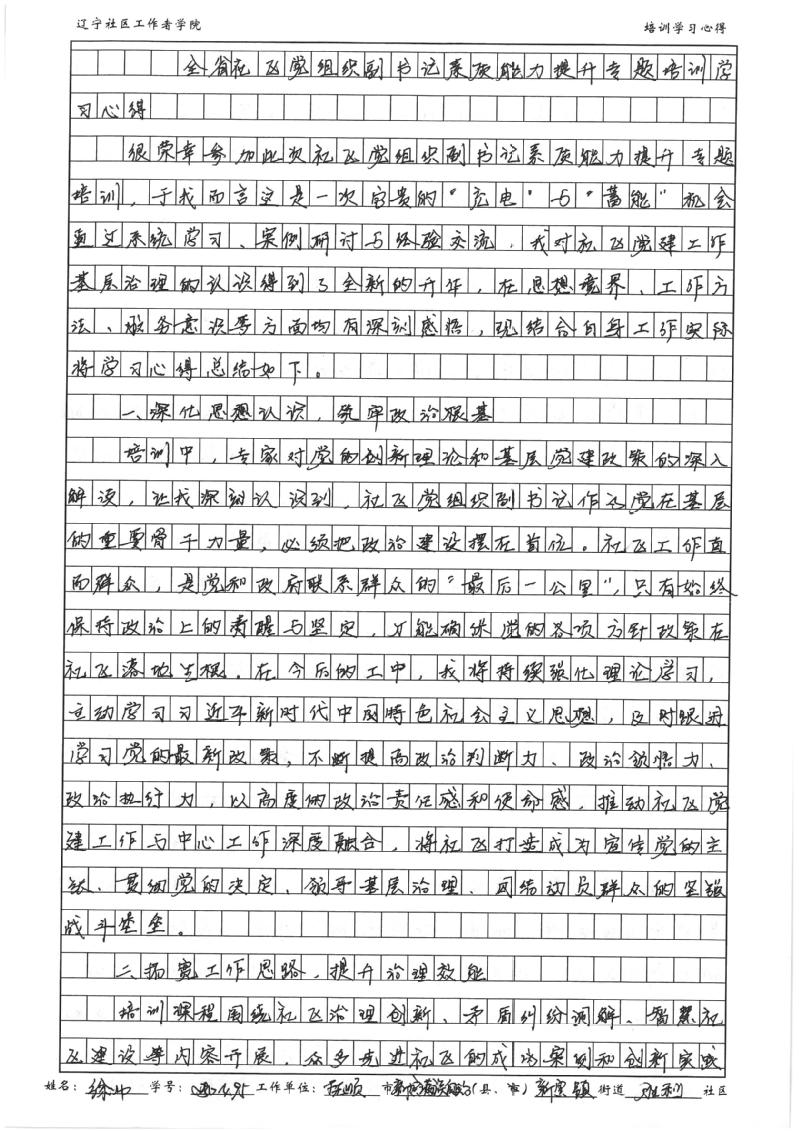 辽宁社区工作者学院 培训学习心得
全省社区党组织副书记素质能力提升专题培训学
习心得
很荣幸参加此次社区党组织副书记素质能力提升专题
培训，于我而言这是一次宝贵的“充电”与“蓄能”机会
通过系统学习、案例研讨与经验交流，我对社区党建工作
基层治理的认识得到了全新的升华，在思想境界、工作方
法、服务意识等方面均有深刻感悟，现结合自身工作实际
将学习心得总结如下。
一、深化思想认识，筑牢政治根基
培训中，专家对党的创新理论和基层党建政策的深入
解读，让我深刻认识到，社区党组织副书记作为党在基层
的重要骨干力量，必须把政治建设摆在首位。社区工作直
面群众，是党和政府联系群众的“最后一公里”，只有始终
保持政治上的清醒与坚定，才能确保党的各项方针政策在
社区落地生根。在今后的工中，我将持续强化理论学习，
主动学习习近平新时代中国特色社会主义思想，及时跟进
学习党的最新政策，不断提高政治判断力、政治领悟力、
政治执行力，以高度的政治责任感和使命感，推动社区党
建工作与中心工作深度融合，将社区打造成为宣传党的主
张、贯彻党的决定、领导基层治理、团结动员群众的坚强
战斗堡垒。
二、拓宽工作思路，提升治理效能
培训课程围绕社区治理创新、矛盾纠纷调解、智慧社
区建设等内容开展，众多先进社区的成功案例和创新实践
姓名： 学号： 工作单位：抚顺 市 （县、市） 新宾镇 街道 胜利 社区